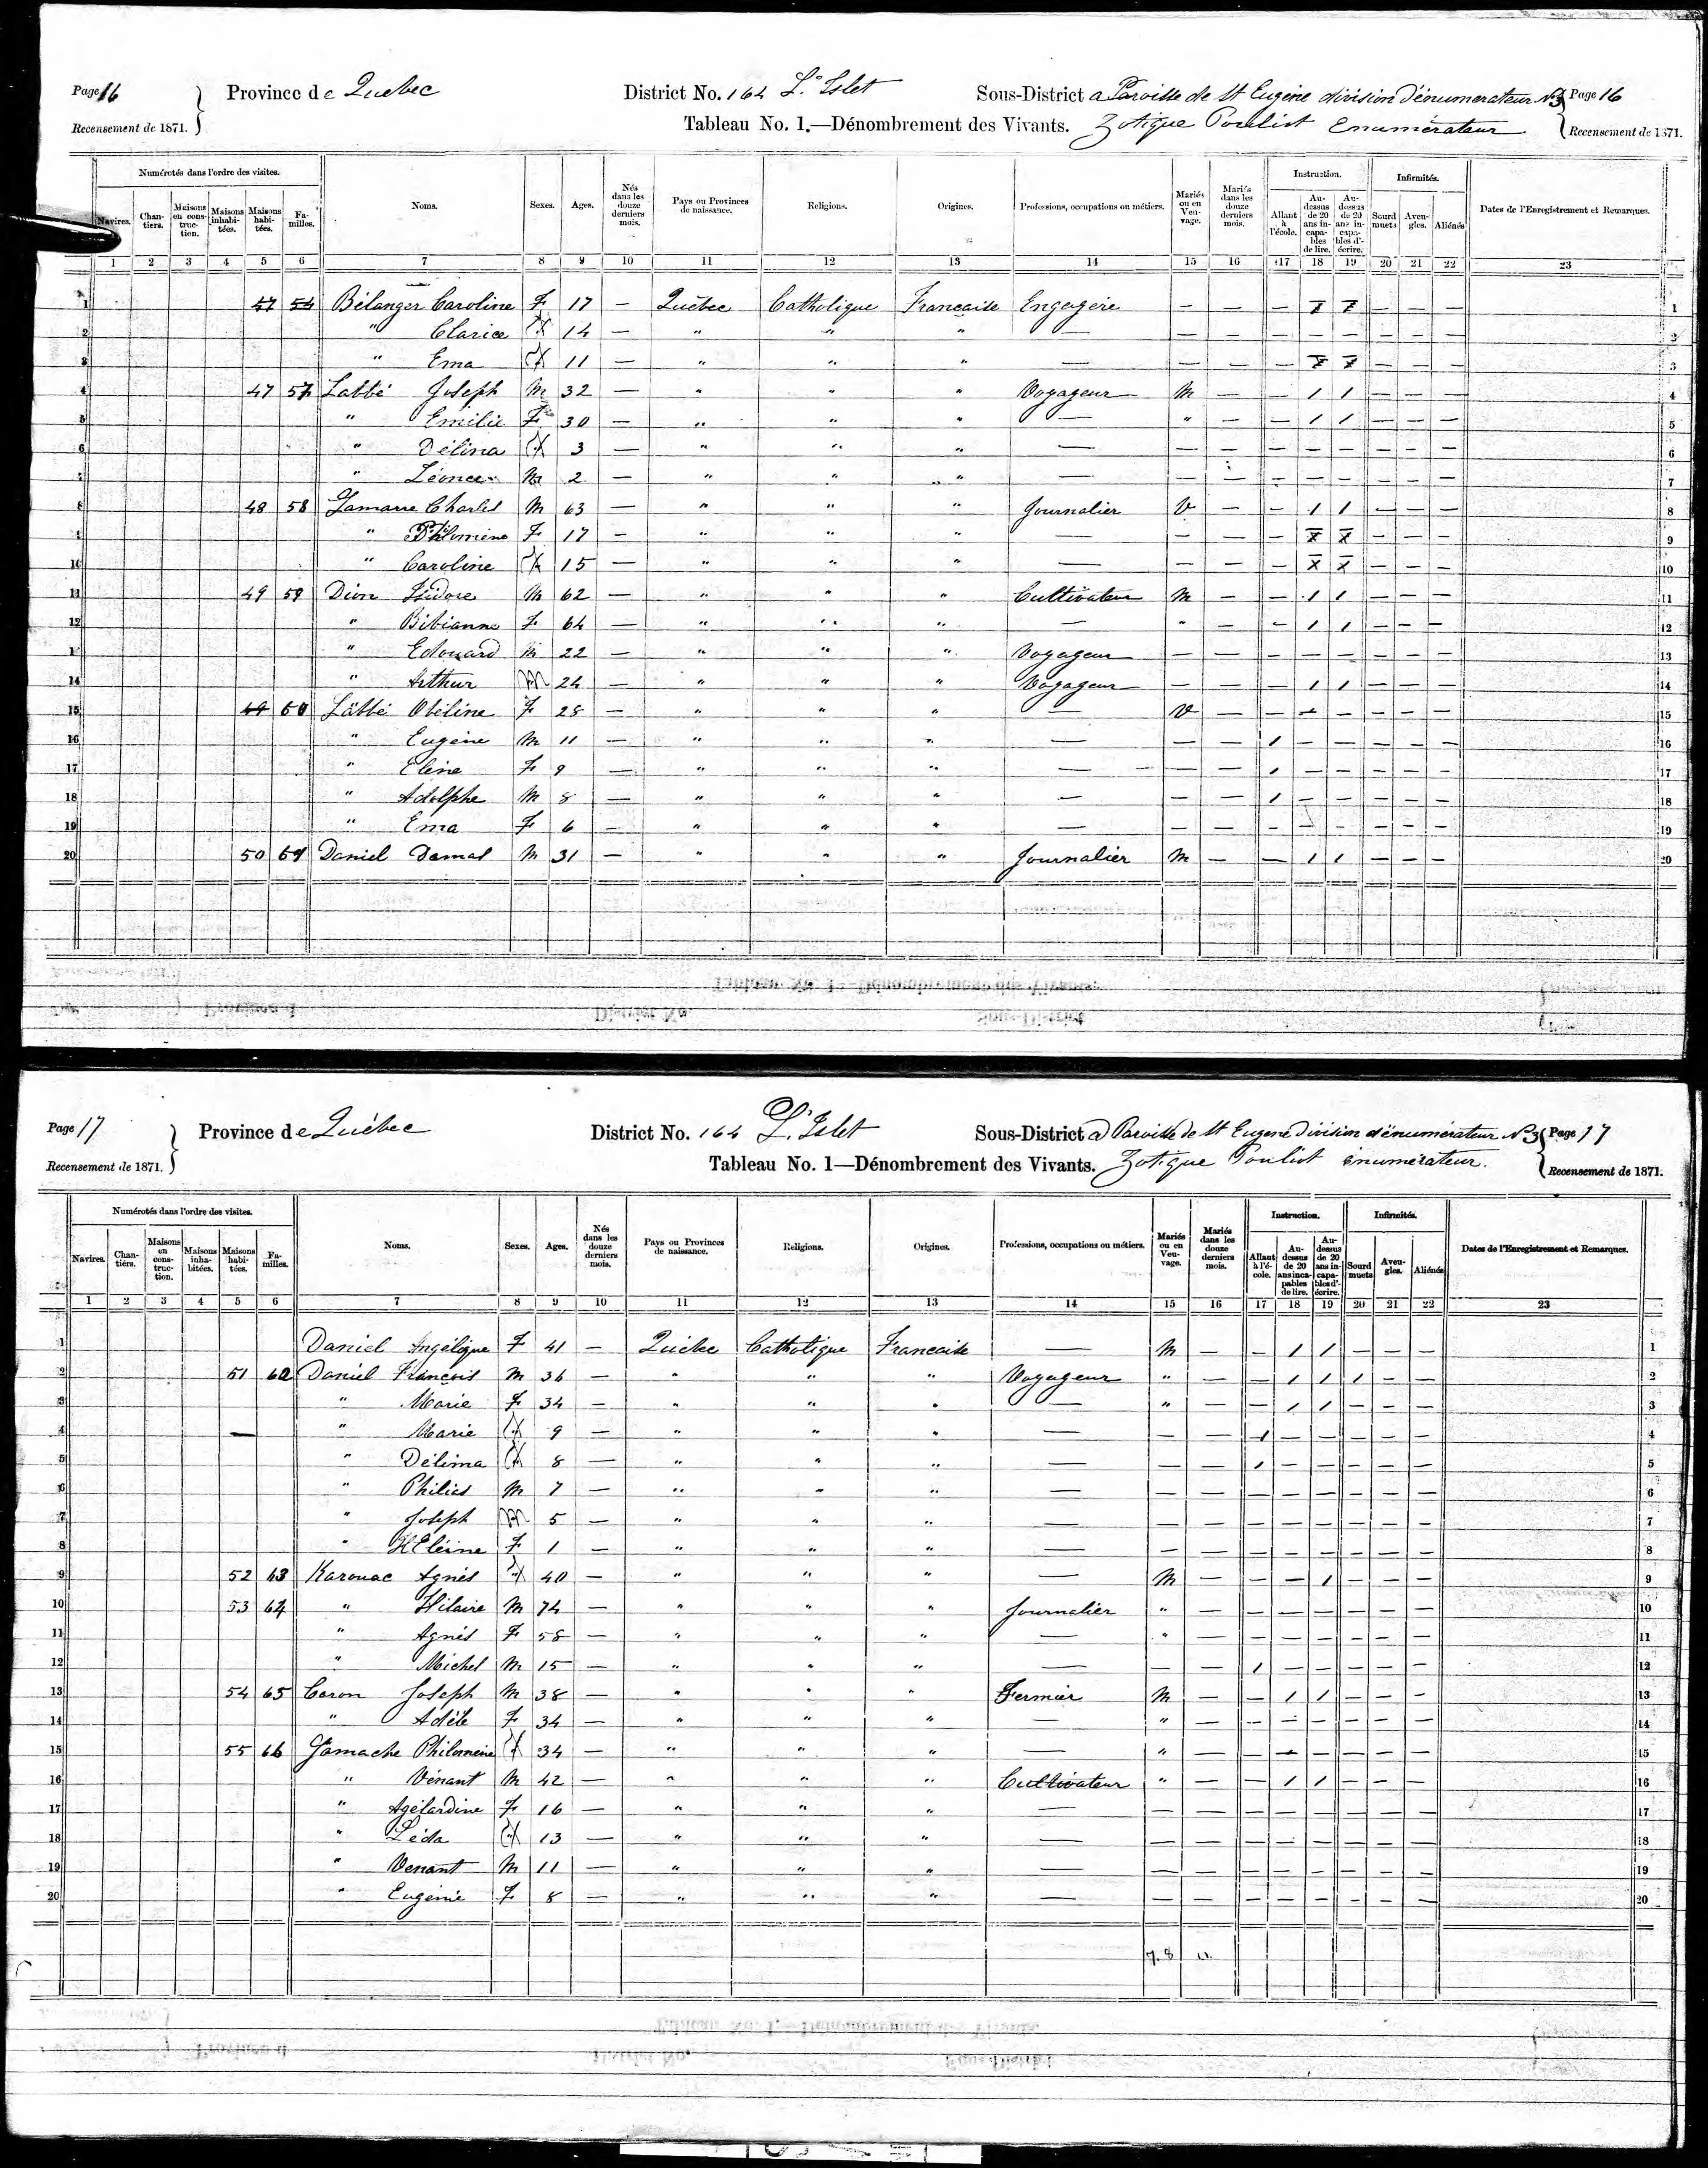 Page 16 Province de Quebec District No. 164 L'Islet Sous-District a Paroisse de St Eugène division d'énumerateur No 3 Page 16
Recensement de 1871. Tableau No. 1.—Dénombrement des Vivants. Zotique Pouliot Enumérateur Recensement de 1871.
Numérotés dans l'ordre des visites. Noms. Sexes. Ages. Nés dans les douze derniers mois. Pays ou Provinces de naissance. Religions. Origines. Professions, occupations ou métiers. Mariés ou en Veuvage. Mariés dans les douze derniers mois. Instruction. Infirmités. Dates de l'Enregistrement et Remarques.
Navires. Chantiers. Maisons en construction. Maisons inhabitées. Maisons habitées. Familles. Allant à l'école. Au-dessus de 20 ans incapables de lire. Au-dessus de 20 ans incapables d'écrire. Sourd muets Aveugles. Aliénés
1 2 3 4 5 6 7 8 9 10 11 12 13 14 15 16 17 18 19 20 21 22 23
1 Bélanger Caroline F 17 — Québec Catholique Francaise Engagère — — — — — — 1
2 " Clarice 14 — " " " — — — — — — — — — 2
3 " Ema 11 — " " " — — — — — — — 3
4 47 57 Labbé Joseph M 32 — " " " Voyageur M — — 1 1 — — — 4
5 " Emilie F 30 — " " " — " — — 1 1 — — — 5
6 " Délina 3 — " " " — — — — — — — — — 6
7 " Léonce M 2 — " " " — — — — — — — — — 7
8 48 58 Jamarre Charles M 63 — " " " Journalier V — — 1 1 — — — 8
9 " Philomène F 17 — " " " — — — — — — — 9
10 " Caroline 15 — " " " — — — — — — — 10
11 49 59 Dion Isidore M 62 — " " " Cultivateur M — — 1 1 — — — 11
12 " Bibianne F 64 — " " " — " — — 1 1 — — — 12
13 " Edouard M 22 — " " " Voyageur — — — — — — — — 13
14 " Arthur M 24 — " " " Voyageur — — — 1 1 — — — 14
15 60 Labbé Obéline F 28 — " " " — V — — — — — — 15
16 " Eugène M 11 — " " " — — — 1 — — — — — 16
17 " Eléne F 9 — " " " — — — 1 — — — — — 17
18 " Adolphe M 8 — " " " — — — 1 — — — — — 18
19 " Ema F 6 — " " " — — — — — — — — — 19
20 50 61 Daniel Damas M 31 — " " " Journalier M — — 1 1 — — — 20
Page 17 Province de Québec District No. 164 L'Islet Sous-District a Paroisse de St Eugène division d'énumérateur No 3 Page 17
Recensement de 1871. Tableau No. 1—Dénombrement des Vivants. Zotique Pouliot énumérateur. Recensement de 1871.
Numérotés dans l'ordre des visites. Noms. Sexes. Ages. Nés dans les douze derniers mois. Pays ou Provinces de naissance. Religions. Origines. Professions, occupations ou métiers. Mariés ou en Veuvage. Mariés dans les douze derniers mois. Instruction. Infirmités. Dates de l'Enregistrement et Remarques.
Navires. Chantiers. Maisons en construction. Maisons inhabitées. Maisons habitées. Familles. Allant à l'école. Au-dessus de 20 ans incapables de lire. Au-dessus de 20 ans incapables d'écrire. Sourd muets Aveugles. Aliénés
1 2 3 4 5 6 7 8 9 10 11 12 13 14 15 16 17 18 19 20 21 22 23
1 Daniel Angélique F 41 — Québec Catholique Francaise — M — — 1 1 — — — 1
2 51 62 Daniel François M 36 — " " " Voyageur " — — 1 1 1 — — 2
3 " Marie F 34 — " " " — " — — 1 1 — — — 3
4 — " Marie 9 — " " " — — — 1 — — — — — 4
5 " Délima 8 — " " " — — — 1 — — — — — 5
6 " Philias M 7 — " " " — — — — — — — — — 6
7 " Joseph M 5 — " " " — — — — — — — — — 7
8 " Eléine F 1 — " " " — — — — — — — — — 8
9 52 63 Karouac Agnés 40 — " " " — M — — — 1 — — — 9
10 53 64 " Hilaire M 74 — " " " Journalier " — — — — — — — 10
11 " Agnés F 58 — " " " — " — — — — — — — 11
12 " Michel M 15 — " " " — — — 1 — — — — — 12
13 54 65 Caron Joseph M 38 — " " " Fermier M — — 1 1 — — — 13
14 " Adèle F 34 — " " " — " — — — — — — — 14
15 55 66 Gamache Philomene 34 — " " " — " — — — — — — 15
16 " Vénant M 42 — " " " Cultivateur " — — 1 1 — — — 16
17 " Agélardine F 16 — " " " — — — — — — — — — 17
18 " Léda 13 — " " " — — — — — — — — — 18
19 " Venant M 11 — " " " — — — — — — — — — 19
20 " Eugénie F 8 — " " " — — — — — — — — — 20